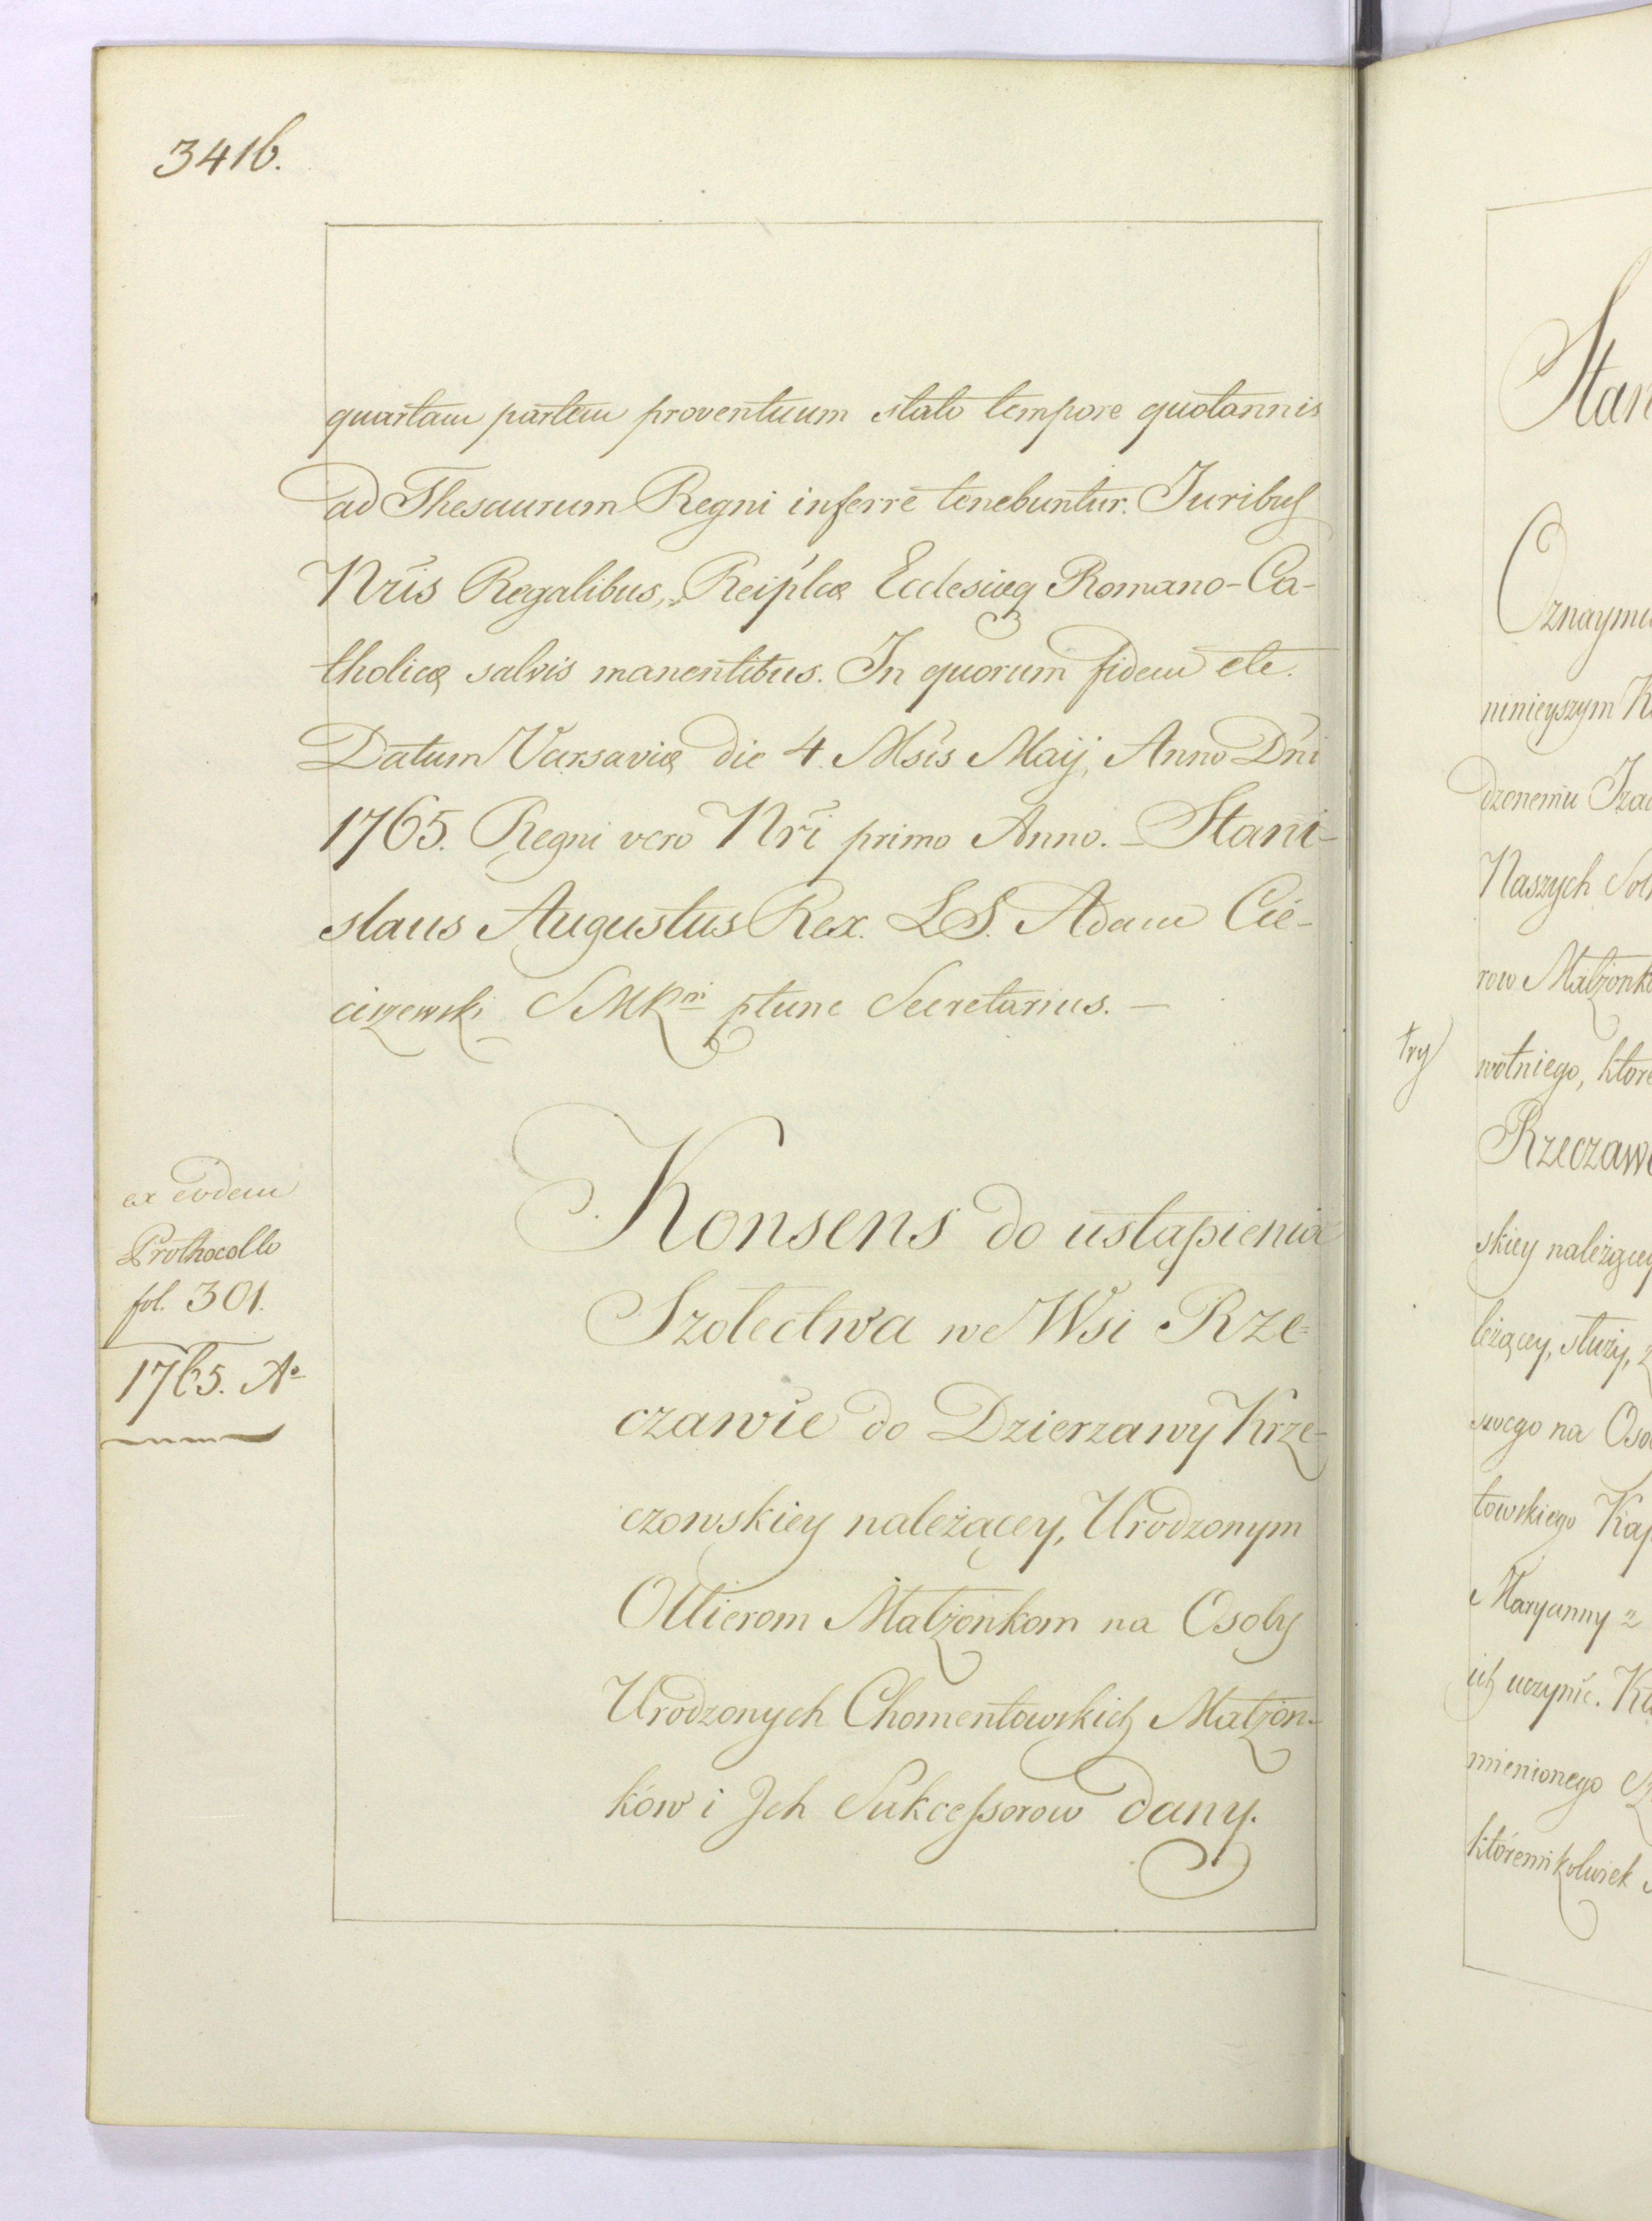 3416.
quartam partem proventuum stato tempore quotannis
ad Thesaurum Regni inferre tenebuntur. Juribus
Nris Regalibus, Reiplcæ Ecclesiæq Romano-Ca-
tholicæ salvis manentibus. In quorum fidem etc.
Datum Varsaviæ die 4. Msis Maij, Anno Dni
1765. Regni vero Nri primo Anno. – Stani-
slaus Augustus Rex. LS. Adam Cie-
ciszewski SMRni ptunc Secretarius. –
ex eodem
Prothocollo
fol. 301.
1765. Ao
Konsens do ustąpienia
Szołectwa we Wsi Rze=
czawie do Dzierzawy Krze-
czowskiey należącey, Urodzonym
Ollierom Małżonkom na Osoby
Urodzonych Chomentowskich Małżon-
ków i Jch Sukcessorow dany.
Stan
Oznaymu
ninieyszym
dzonemu
Naszych
row Małżonk
try
wotniego,ktore
Rzeczaw
skiey należącey
leżącey, służy,
swego na Oso
towskiego Kap
Maryanny z
ich uczynić.
mienionego
któremikolwiek